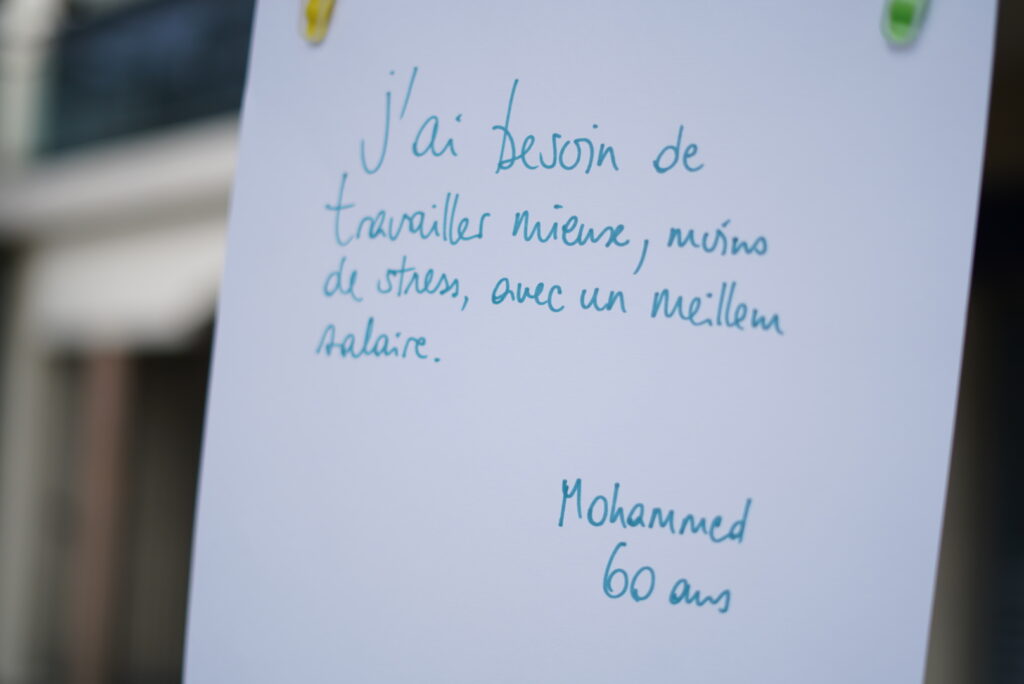 j'ai besoin de
travailler mieux, moins
de stress, avec un meilleur
salaire.
Mohammed
60 ans